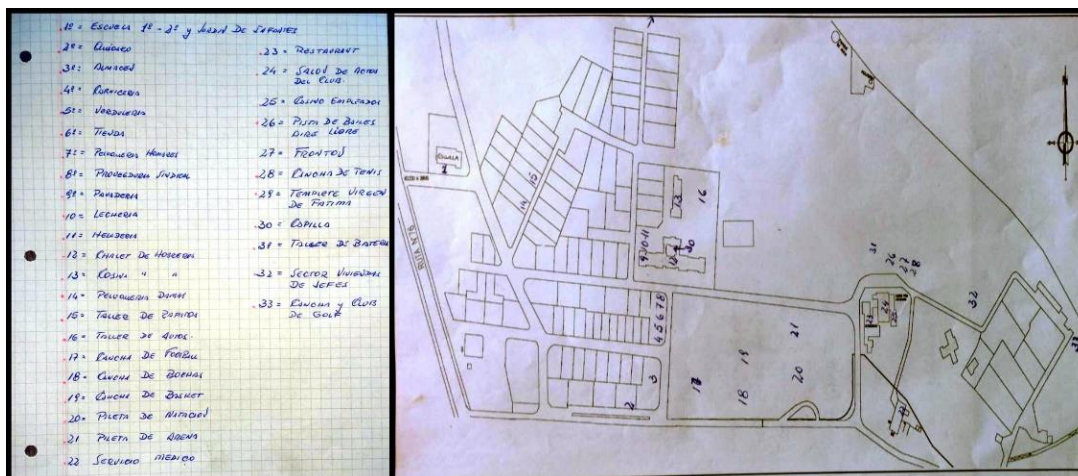 1º = ESCUELA 1º - 2º y JARDIN DE INFANTES
2º QUIOSCO
3º ALMACEN
4º CARNICERIA
5º VERDULERIA
6º TIENDA
7º PELUQUERIA HOMBRES
8º PROVEEDURIA SINDICAL
9º PANADERIA
10 = LECHERIA
11 = HELADERIA
12 = CHALET DE
13 = " "
14 = PELUQUERIA DAMAS
15 = TALLER DE
16 = TALLER DE AUTOS.
17 = CANCHA DE FOOTBALL
18 = CANCHA DE BOCHAS
19 = CANCHA DE BASKET
20 = PILETA DE NATACION
21 PILETA DE ARENA
22 SERVICIO MEDICO
23 = RESTAURANT
24 = SALON DE ACTOS
DEL CLUB.
25 = CASINO EMPLEADOS
26 = PISTA DE BAILES
AIRE LIBRE
27 = FRONTON
28 = CANCHA DE TENIS
29 = TEMPLETE VIRGEN
DE FATIMA
30 = CAPILLA
31 = TALLER DE
32 = SECTOR VIVIENDAS
DE JEFES
33 = CANCHA y CLUB
DE GOLF
ESCUELA
1
RUTA Nº76
14
15
13
16
9-10-11
12
30
31
26
27
28
32
4 5 6 7 8
24
21
19
3
17
2
18
20
33